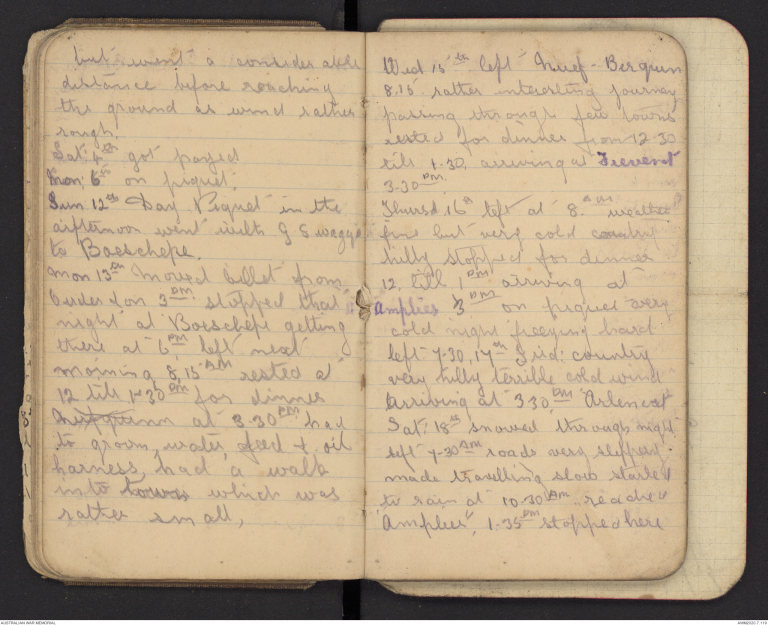 but went a considerable
distance before reaching
the ground as wind rather
rough.
Sat: 4th got payed
Mon, 6th on piquet.
Sun 12th Day Piquet in the
airfternoon went with G S waggon
to Boeschepe.
Mon 13th Moved billet from
3 PM stopped that
night at Boeschepe getting
there at 6 PM, left next
morning 8,15 AM rested at
12 till 1-30 PM for dinner
at 3-30 PM had
to groom, water, feed & oil
harness, had a walk
into town which was
rather small,
Wed 15th left Nuef-Berquin
8.15 rather interesting journey
passing through few towns
rested for dinner from 12-30
till 1-30, arriving at
3-30 PM.
Thursd 16th left at 8. AM weather
fine but very cold country
hilly stopped for dinner
12, till 1 PM arriving at
Amplies 3 PM on piquet very
cold night freezing hard
left 7-30, 17th Frid: country
very hilly terrible cold wind
arriving at 3.30, PM
Sat: 18th snowed through night
left 7-30 AM roads very slippery
made travelling slow started
to rain at 10-30 AM reached
Amplies, 1-35 PM stopped here
AUSTRALIAN WAR MEMORIAL